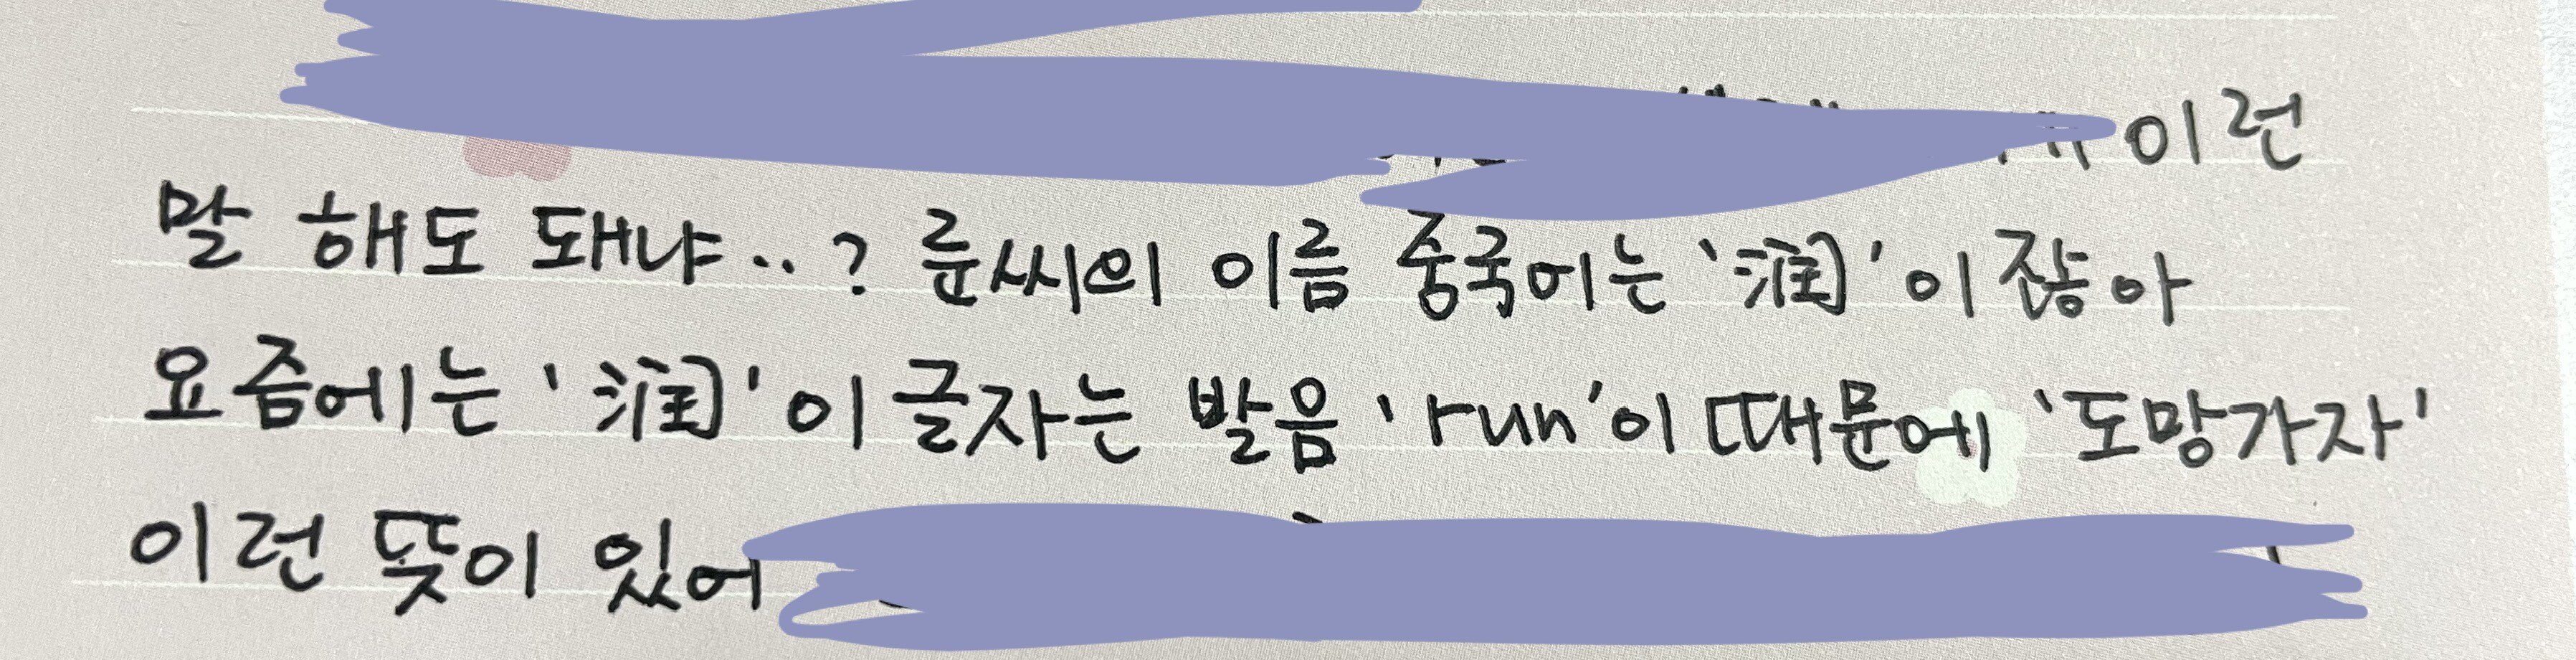 이런
말 해도 돼냐..? 룬씨의 이름 중국어는 '润' 이잖아
요즘에는 '润' 이 글자는 발음 'run'이 때문에 '도망가자'
이런 뜻이 있어